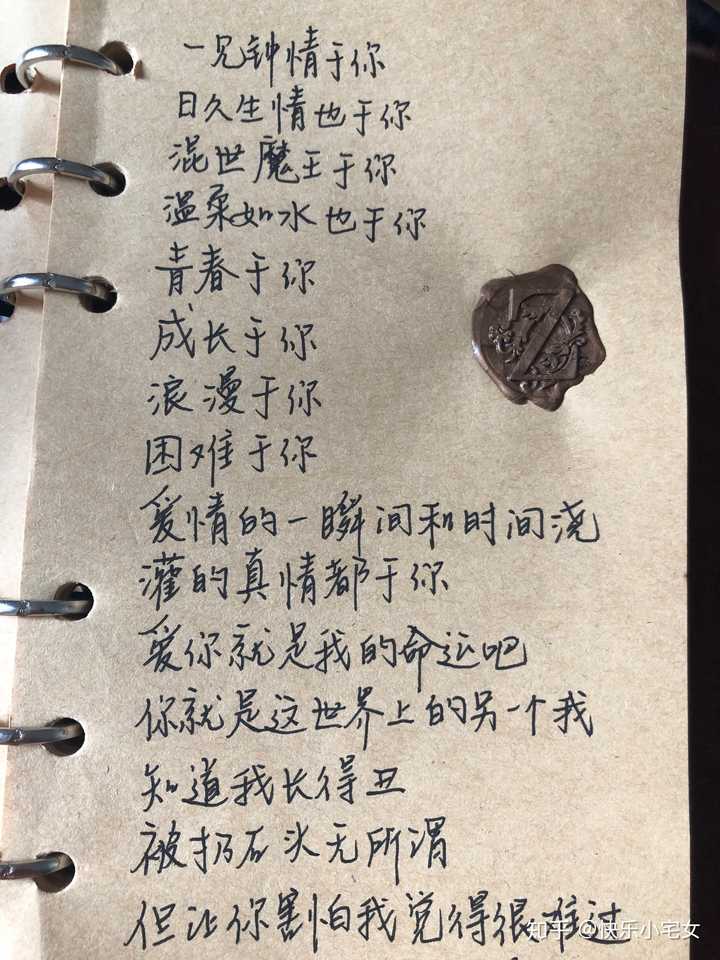 一见钟情于你
日久生情也于你
混世魔王于你
温柔如水也于你
青春于你
成长于你
浪漫于你
困难于你
爱情的一瞬间和时间浇
灌的真情都于你
爱你就是我的命运吧
你就是这世界上的另一个我
知道我长得丑
被扔石头无所谓
但让你害怕我觉得很难过
知乎 @快乐小宅女